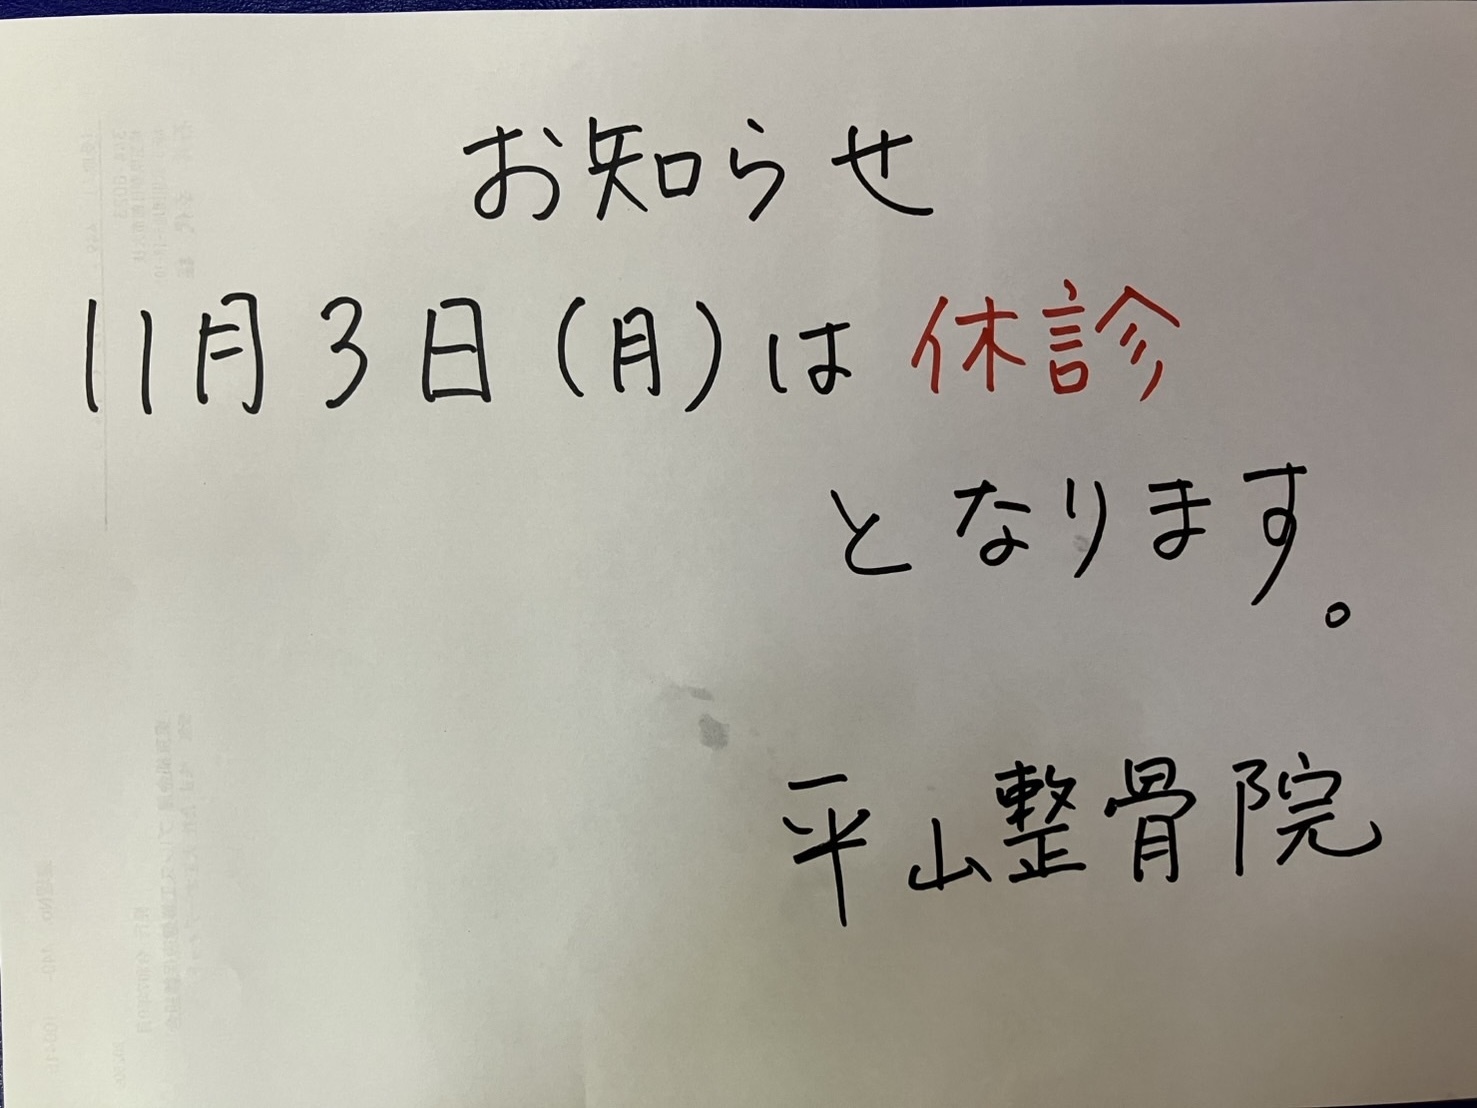 お知らせ
11月3日(月)は休診
となります。
平山整骨院